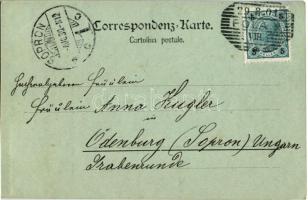 Correspondenz-Karte.
Cartolina postale.
SOPRON
29 8 01
5 5
Hochwolgeboren Fräulein
Fräulein
Anna Ziegler
in
Ödenburg (Sopron) Ungarn
Grabenrunde